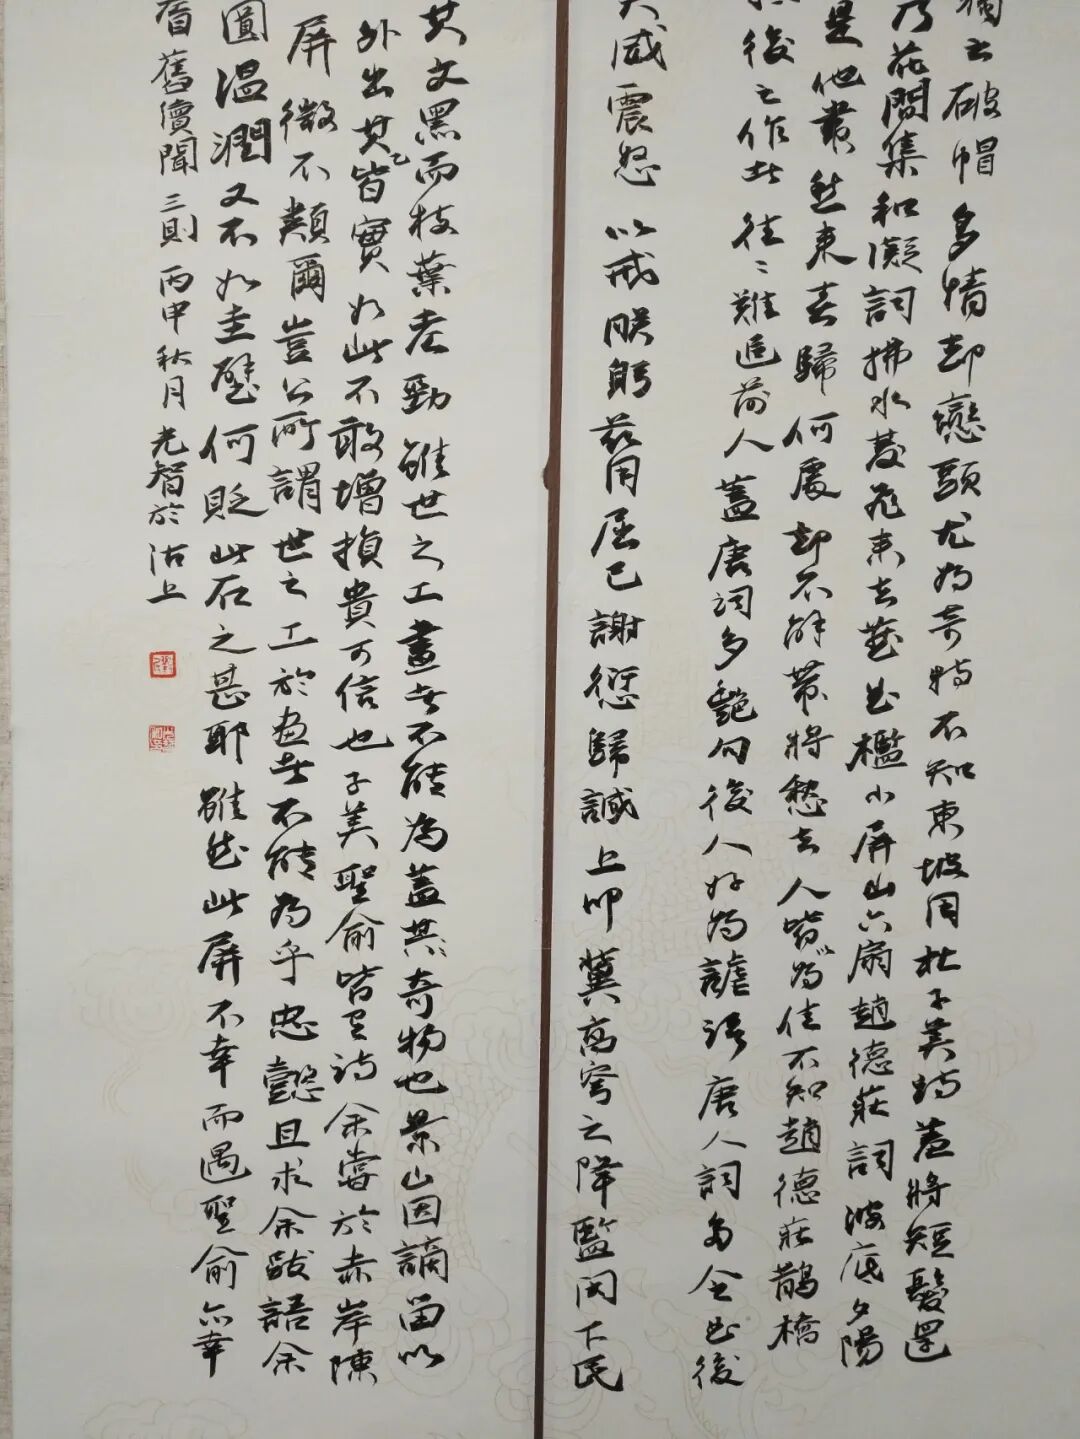 破帽多情却戀頭尤為奇特不知東坡用杜子美詩羞將短髮還
乃花間集和凝詞拂水雙飛來去燕曲檻小屏山六扇趙德莊詞波底夕陽
是他春帶愁來春歸何處却不解帶將愁去人皆以為佳不知趙德莊鵲橋
後之作此往〻難追前人蓋唐詞多艷句後人好為謔語唐人詞多令曲後
天威震怒以戒朕躬茲用屈己謝愆歸誠上叩冀高穹之降監閔下民
其文黑而枝葉老勁雖世之工畫者不能為蓋其奇物也景山因謫留以
外出其皆實如此不敢增損貴可信也子美聖俞皆有詩余嘗於赤岸陳
屏微不類爾豈公所謂世之工於畫者不能為乎忠懿且求余跋語余
圓溫潤又不如圭璧何貶此石之甚耶雖然此屏不幸而遇聖俞亦幸
耆舊續聞三則丙申秋月光智於沽上